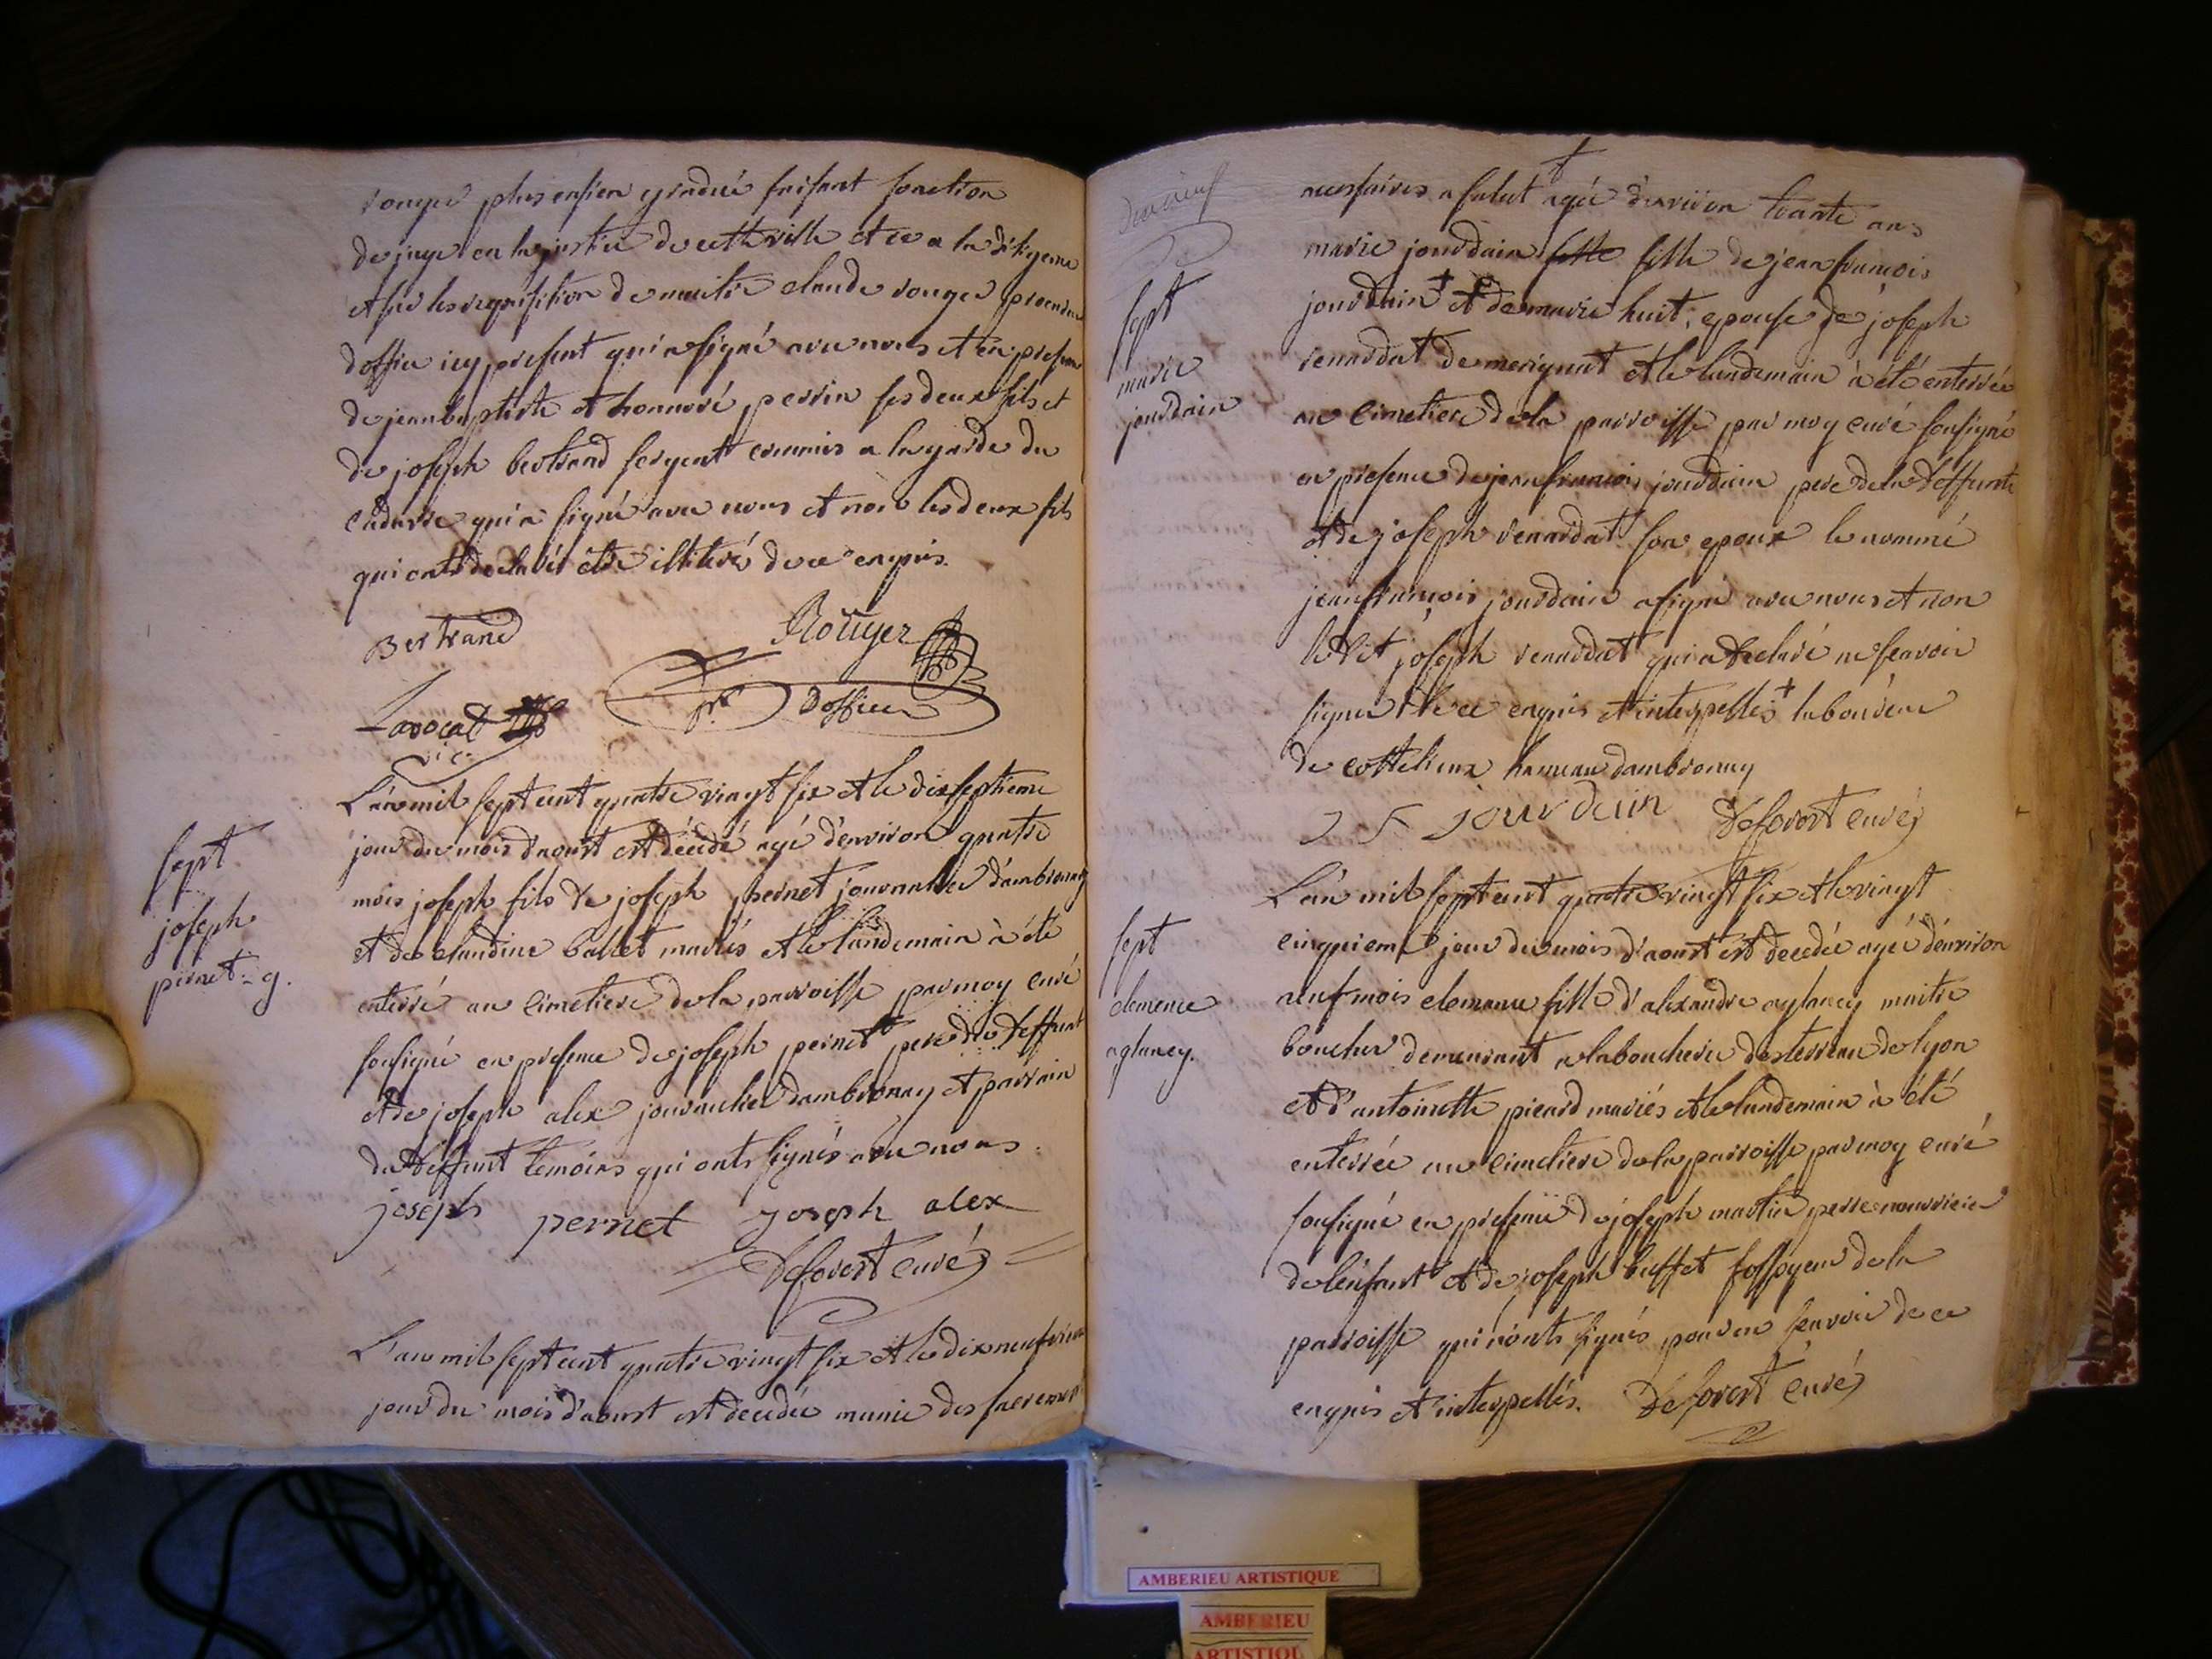 rouyer plus ensien gradué faisant fonction
de juge en la justice de cette ville et ce a la diligence
et sur les requisition de maitre claude rouyer procureur
doffice icy present qui a signé avec nous et en presence
de jean baptiste et honnoré perrin ses deux fils et
de joseph bertrand sergent commis a la garde du
cadavre qui a signé avec nous et non les deux fils
qui onts declarés etre illiterés de ce enquis.
Bertrand
Roüyer
Lavocat
pr. doffice
vic.
L'an mil sept cent quatre vingt six et le dixseptieme
jour du mois d'aoust est décédé agé d'environ quatre
mois joseph fils de joseph pernet journalier d'ambronay
et de claudine ballet mariés et le lundemain à été
enterré au cimetiere de la parroisse par moy curé
sousigné en presence de joseph pernet pere du deffunt
et de joseph alex journalier dambronay et parrain
du deffunt temoins qui onts signés avec nous
joseph pernet joseph alex
Deforest curé
sept
joseph
pernet - g.
L'an mil sept cent quatre vingt six et le dixneufvieme
jour du mois d'aoust est decedée munie des sacremens
necessaires a salut agée d'environ trante ans
marie jourdain fille fille de jean francois
jourdain + et de marie huit, epouse de joseph
renardat de merignat et le lundemain à été enterrée
au cimetiere de la parroisse par moy curé sousigné
en presence de jean francois jourdain pere de la deffunte
et de joseph renardat son epoux le nommé
jean francois jourdain a signé avec nous et non
le dit joseph renardat qui a declaré ne scavoir
signer de ce enquis et interpellés + laboureur
de cottelieux hameau dambronay
J F jourdain Deforest curé
sept
marie
jourdain
L'an mil sept cent quatre vingt six et le vingt
cinquieme jour du mois d'aoust est decedée agée d'environ
neuf mois clemance fille d'alexandre aglancy maitre
boucher demeurant a la boucherie des terreau de lyon
et d'antoinette picard mariés et le lundemain à été
enterrée au cimetiere de la parroisse par moy curé
sousigné en presence de joseph martin perre nourricier
de l'enfant et de joseph buffet fossoyeur de la
parroisse qui n'onts signés pour ne scavoir de ce
enquis et interpellés. Deforest curé
sept
clemence
aglancy.
AMBERIEU ARTISTIQUE
AMBERIEU
ARTISTIQU